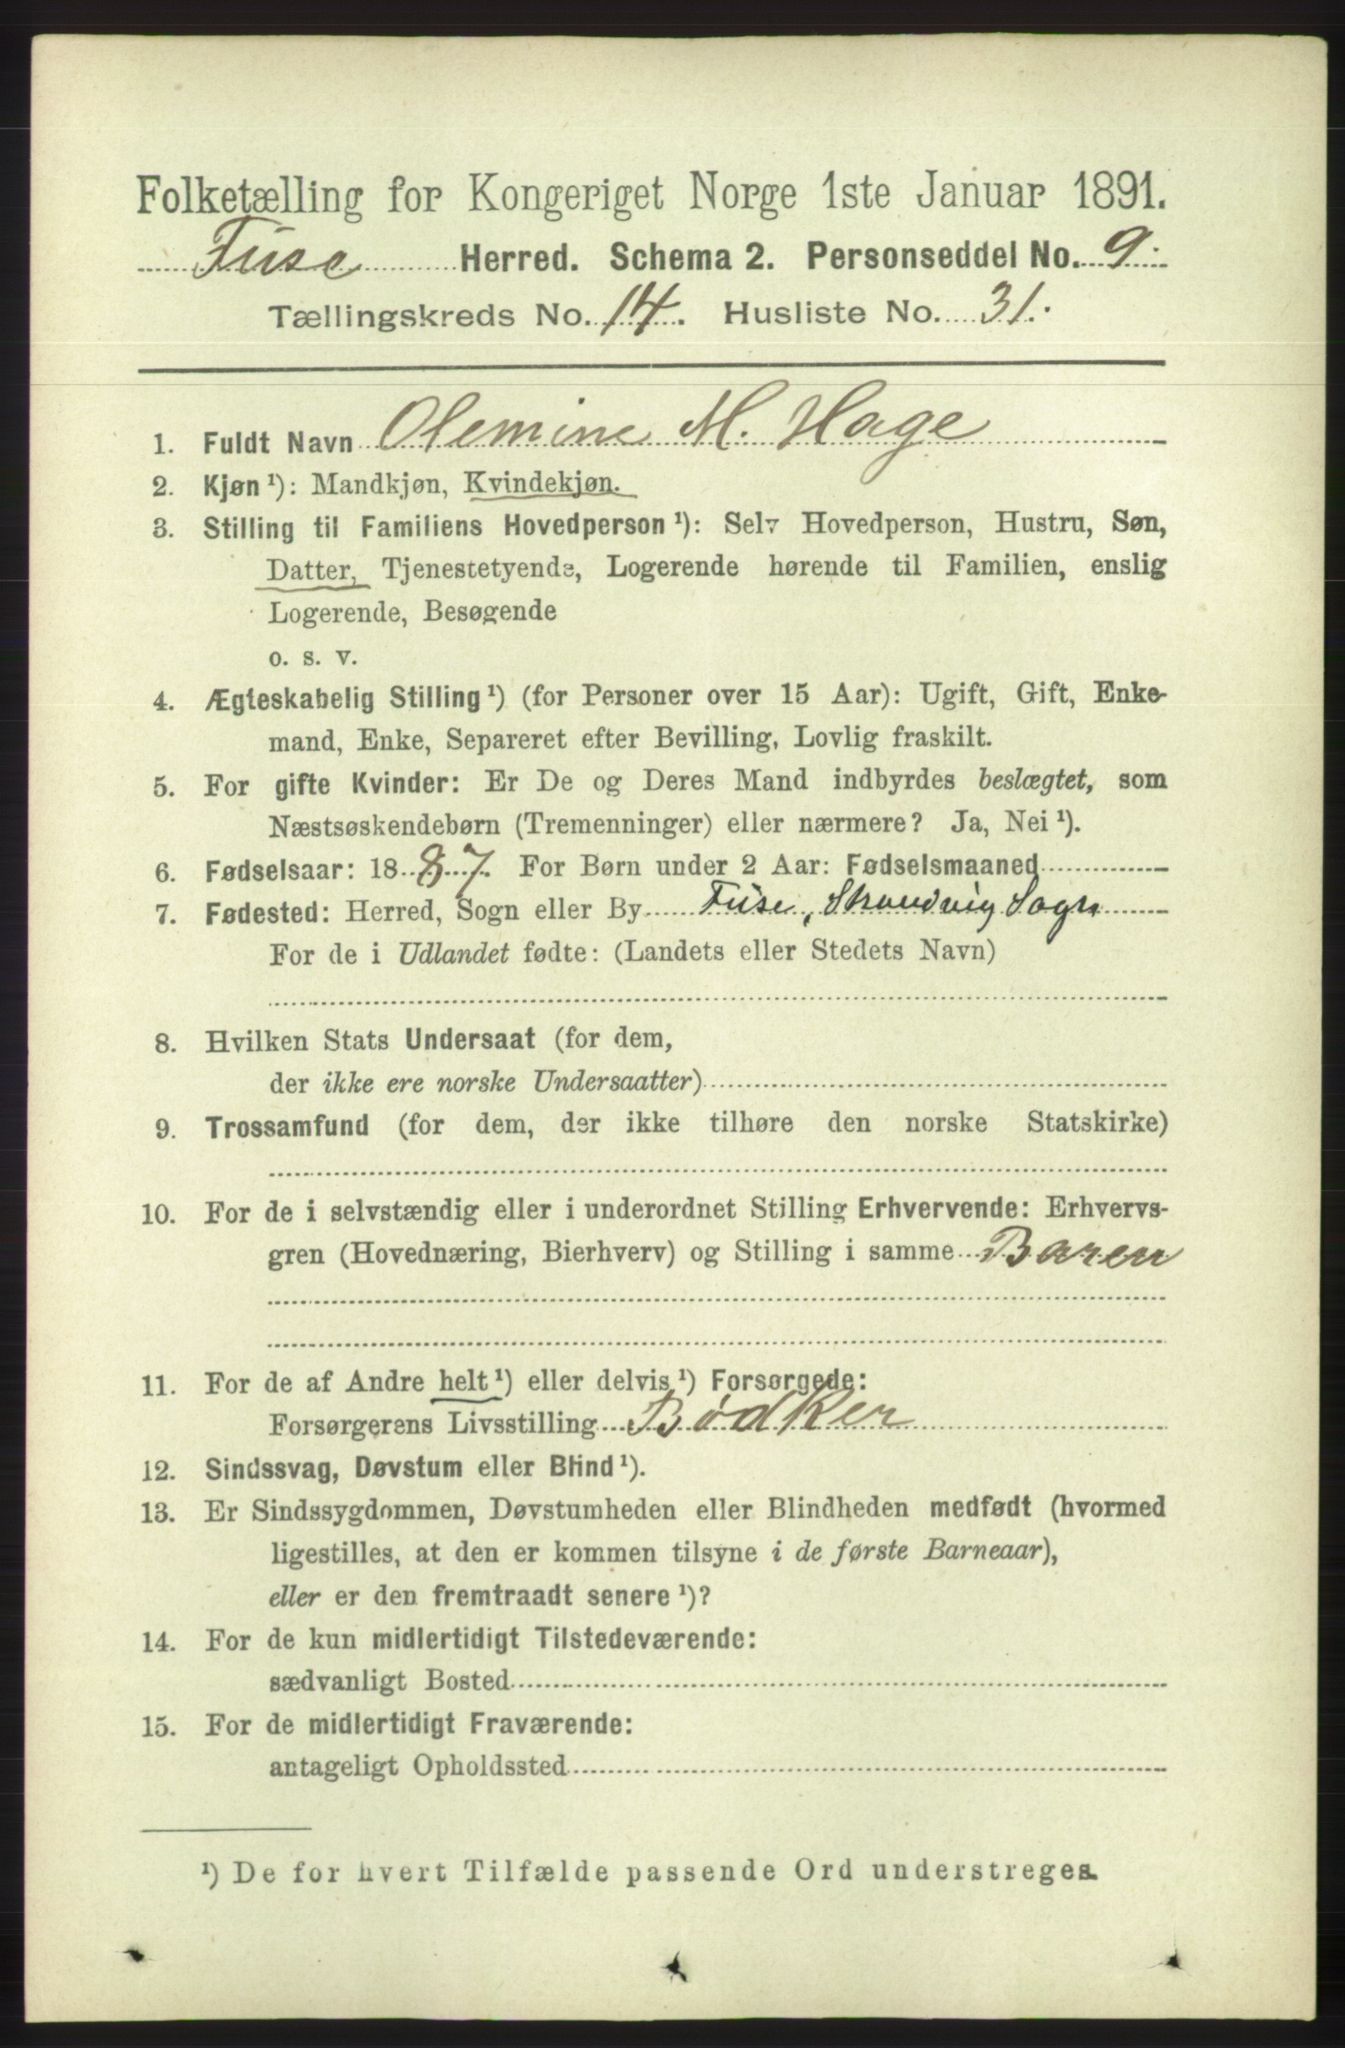 Folketælling for Kongeriget Norge 1ste Januar 1891.
Fuse Herred. Schema 2. Personseddel No. 9.
Tællingskreds No. 14. Husliste No. 31.
1. Fuldt Navn Olemine M. Hage
2. Kjøn ¹): Mandkjøn, Kvindekjøn.
3. Stilling til Familiens Hovedperson ¹): Selv Hovedperson, Hustru, Søn,
Datter, Tjenestetyende, Logerende hørende til Familien, enslig
Logerende, Besøgende
o. s. v.
4. Ægteskabelig Stilling ¹) (for Personer over 15 Aar): Ugift, Gift, Enke-
mand, Enke, Separeret efter Bevilling, Lovlig fraskilt.
5. For gifte Kvinder: Er De og Deres Mand indbyrdes beslægtet, som
Næstsøskendebørn (Tremenninger) eller nærmere? Ja, Nei ¹).
6. Fødselsaar: 1887. For Børn under 2 Aar: Fødselsmaaned
7. Fødested: Herred, Sogn eller By Fuse, Strandvig Sogn
For de i Udlandet fødte: (Landets eller Stedets Navn)
8. Hvilken Stats Undersaat (for dem,
der ikke ere norske Undersaatter)
9. Trossamfund (for dem, der ikke tilhøre den norske Statskirke)
10. For de i selvstændig eller i underordnet Stilling Erhvervende: Erhvervs-
gren (Hovednæring, Bierhverv) og Stilling i samme Baren
11. For de af Andre helt ¹) eller delvis ¹) Forsørgede:
Forsørgerens Livsstilling Bødker
12. Sindssvag, Døvstum eller Blind ¹).
13. Er Sindssygdommen, Døvstumheden eller Blindheden medfødt (hvormed
ligestilles, at den er kommen tilsyne i de første Barneaar),
eller er den fremtraadt senere ¹)?
14. For de kun midlertidigt Tilstedeværende:
sædvanligt Bosted
15. For de midlertidigt Fraværende:
antageligt Opholdssted
¹) De for hvert Tilfælde passende Ord understreges.